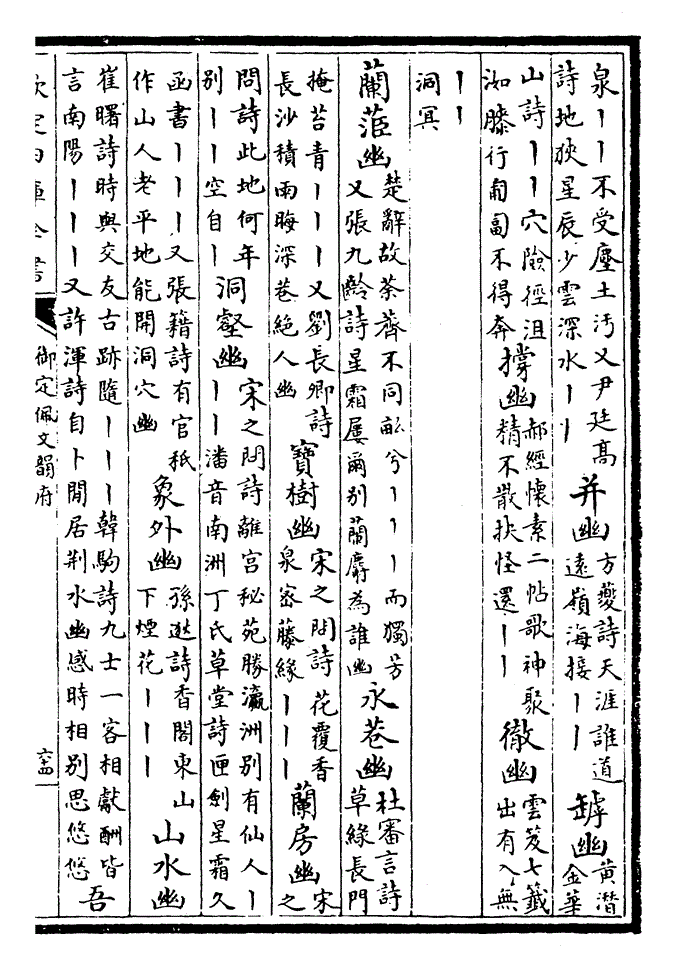 泉丨丨不受塵土汚又尹廷髙
詩地狹星辰少雲深水丨丨
并幽
方夔詩天涯誰道
遠嶺海接丨丨
罅幽
黄潜
金華
山詩丨丨穴險徑沮
洳滕行匍匐不得奔
撐幽
郝經懷素二帖歌神聚
精不散抉怪還丨丨
徹幽
雲笈七籤
出有入無
丨丨
洞冥
蘭茝幽
楚辭故荼薺不同畝兮丨丨丨而獨芳
又張九齡詩星霜屢爾别蘭麝為誰幽
永巷幽
杜審言詩
草緑長門
掩苔青丨丨丨又劉長卿詩
長沙積雨晦深巷絶人幽
寶樹幽
宋之問詩花覆香
泉密藤緣丨丨丨
蘭房幽
宋
之
問詩此地何年
别丨丨空自丨
洞壑幽
宋之問詩離宫秘苑勝瀛洲别有仙人丨
丨丨潘音南洲丁氏草堂詩匣劍星霜久
函書丨丨丨又張籍詩有官秪
作山人老平地能開洞穴幽
象外幽
孫逖詩香閣東山
下煙花丨丨丨
山水幽
崔曙詩時與交友古跡隨丨丨丨韓駒詩九士一客相獻酬皆吾
言南陽丨丨丨又許渾詩自卜閒居荆水幽感時相别思悠悠
欽定四庫全書
御定佩文韻府
六十四